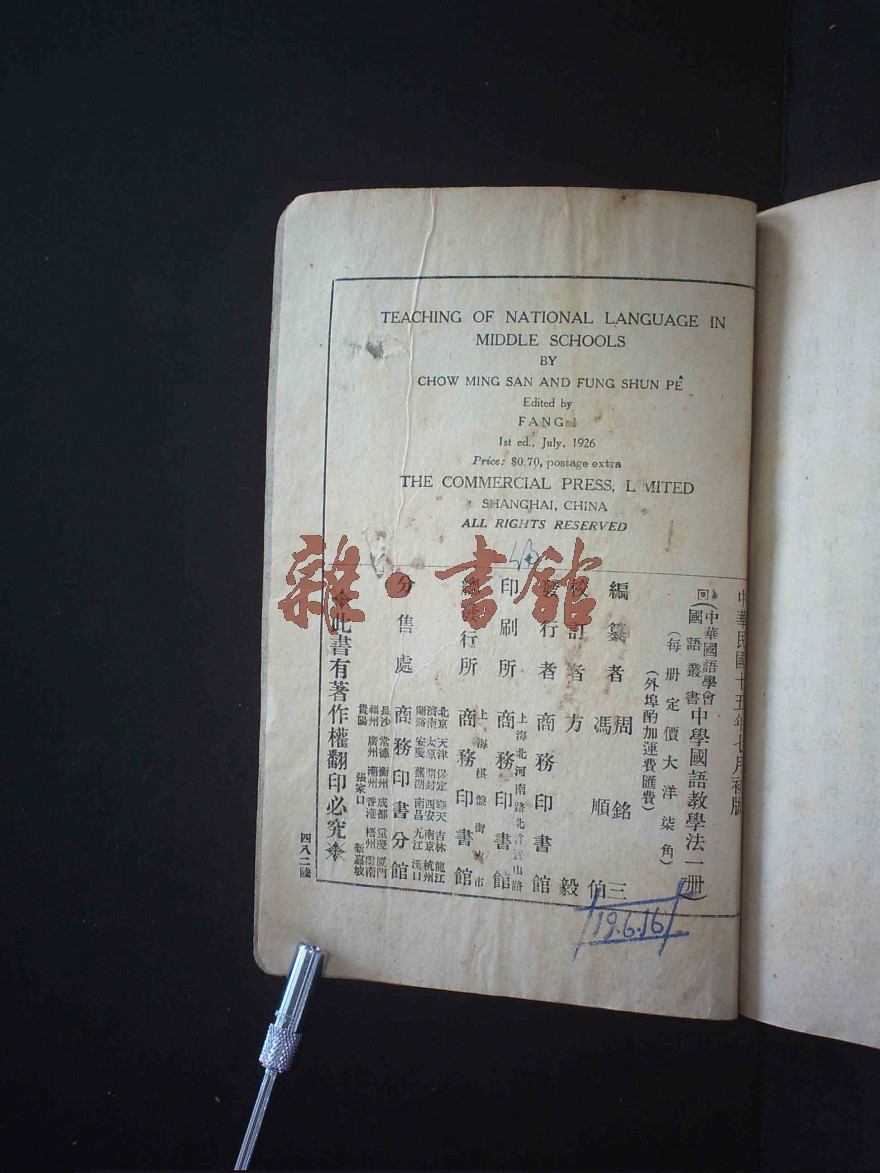 TEACHING OF NATIONAL LANGUAGE IN
MIDDLE SCHOOLS
BY
CHOW MING SAN AND FUNG SHUN PÊ
Edited by
FANG I
1st ed., July, 1926
Price: $0.70, postage extra
THE COMMERCIAL PRESS, LIMITED
SHANGHAI, CHINA
ALL RIGHTS RESERVED
雜·書館
中華民國十五年七月初版
(中華國語學會
國語叢書)中學國語教學法一冊
(每冊定價大洋柒角)
(外埠酌加運費匯費)
編纂者 周銘三
馮順伯
校訂者 方毅
發行者 商務印書館
印刷所 上海北河南路北首寶山路
商務印書館
總發行所 上海棋盤街中市
商務印書館
分售處 商務印書分館
北京 天津 保定 奉天 吉林 龍江
濟南 太原 開封 西安 南京 杭州
蘭谿 安慶 蕪湖 南昌 九江 漢口
長沙 常德 衡州 成都 重慶 廈門
福州 廣州 潮州 香港 梧州 雲南
貴陽 張家口 新嘉坡
此書有著作權翻印必究
四八二陸
19.6.16